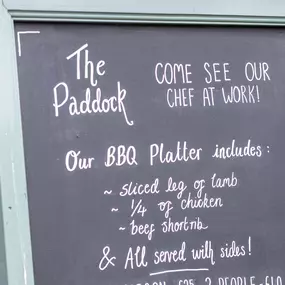 The
Paddock
COME SEE OUR
CHEF AT WORK!
Our BBQ Platter includes:
~ sliced leg of lamb
~ 1/4 of chicken
~ beef shortrib
& All served with sides!